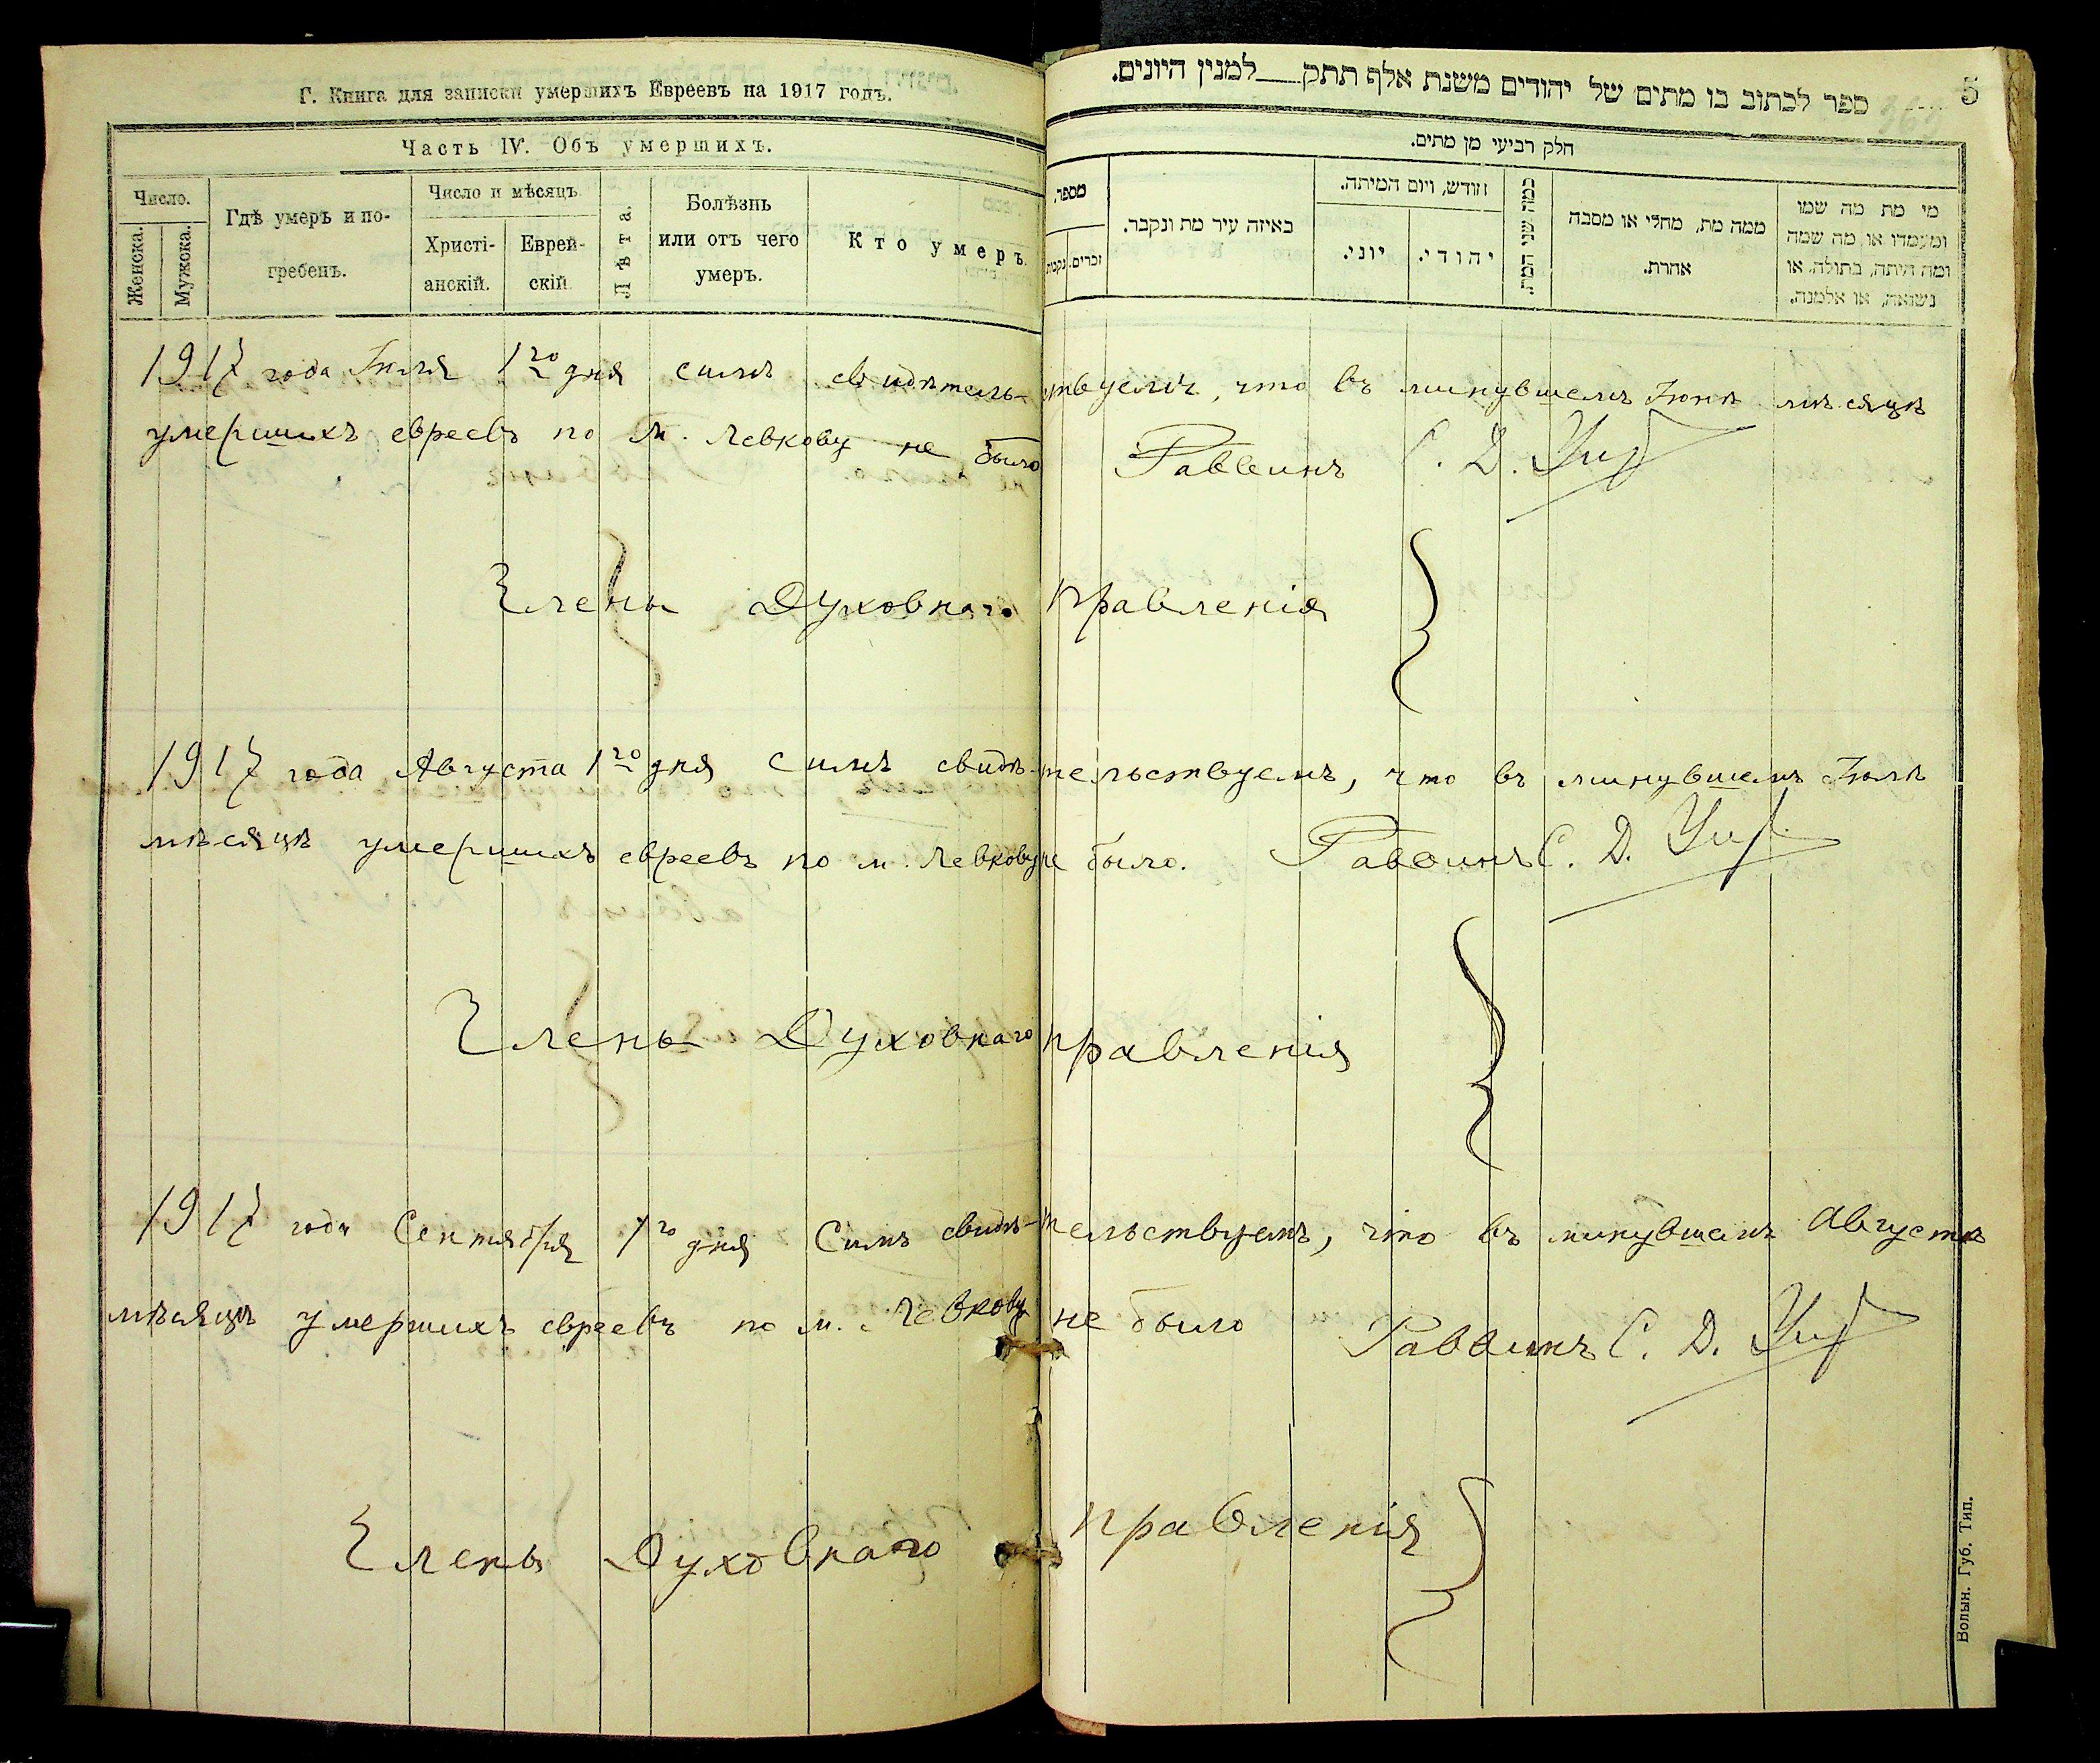 Г. Книга для записки умершихъ Евреевъ на 1917 годъ.
Часть IV. Объ умершихъ.
Число.
Женска.
Мужска.
Гдѣ умеръ и по-
гребенъ.
Число и мѣсяцъ
Христі-
анскій.
Еврей-
скій.
Лѣта.
Болѣзнь
или отъ чего
умеръ.
Кто умеръ.
5
ספר לכתוב בו מתים של יהודים משנת אלף תתק למנין היונים.
חלק רביעי מן מתים.
מספר.
זכרים.
נקבות
באיזה עיר מת ונקבר.
חודש, ויום המיתה.
יוני.
יהודי.
כמה שני המת.
ממה מת, מחלי או מסבה
אחרת.
מי מת מה שמו
ומעמדו או מה שמה
ומה היתה, בתולה, או
נשואה, או אלמנה.
1917 года Іюля 1го дня симъ свидѣтельствуемъ, что въ минувшемъ Іюнѣ мѣсяцѣ
умершихъ евреевъ по м. Левкову не было Раввинъ С. Д.
Члены Духовнаго правленія
1917 года Августа 1го дня симъ свидѣ-тельствуемъ, что въ минувшемъ Іюлѣ
мѣсяцѣ умершихъ евреевъ по м. Левкову не было. Раввинъ С. Д.
Члены Духовнаго правленія
1917 года Сентября 1го дня Симъ свидѣ-тельствуемъ, что въ минувшемъ Августѣ
мѣсяцѣ умершихъ евреевъ по м. Левкову не было Раввинъ С. Д.
Члены Духовнаго правленія
Волын. Губ. Тип.